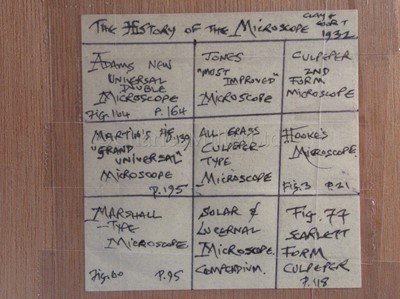 THE HISTORY OF THE MICROSCOPE
CLAY &
COURT
1932
ADAMS NEW
UNIVERSAL
DOUBLE
MICROSCOPE
Fig.164 P.164
JONES
"MOST
IMPROVED"
MICROSCOPE
CULPEPER
2ND
FORM
MICROSCOPE
MARTIN'S Fig.139
"GRAND
UNIVERSAL"
MICROSCOPE
P.195
ALL-BRASS
CULPEPER-
TYPE
MICROSCOPE
HOOKE'S
MICROSCOPE.
Fig.3 P.21
MARSHALL
-TYPE
MICROSCOPE
Fig.60 P.95
SOLAR &
LUCERNAL
MICROSCOPE
COMPENDIUM.
Fig.74
SCARLETT
FORM
CULPEPER
P.118